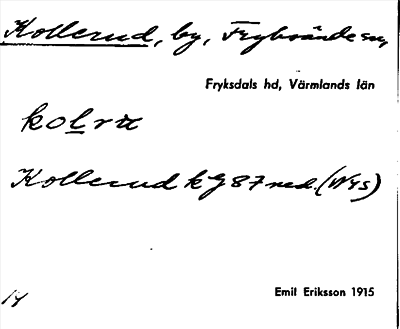 Kollerud, by, Fryksände sn,
Fryksdals hd, Värmlands län
Kollerud k G 87 ned. (N45)
14
Emil Eriksson 1915